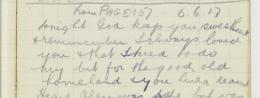 from PAGE 157 6.6.17
tonight God keep you sweetheart
& remember I always loved
you & that I tried to do
my bit for the good old
homeland & you Linda dearest